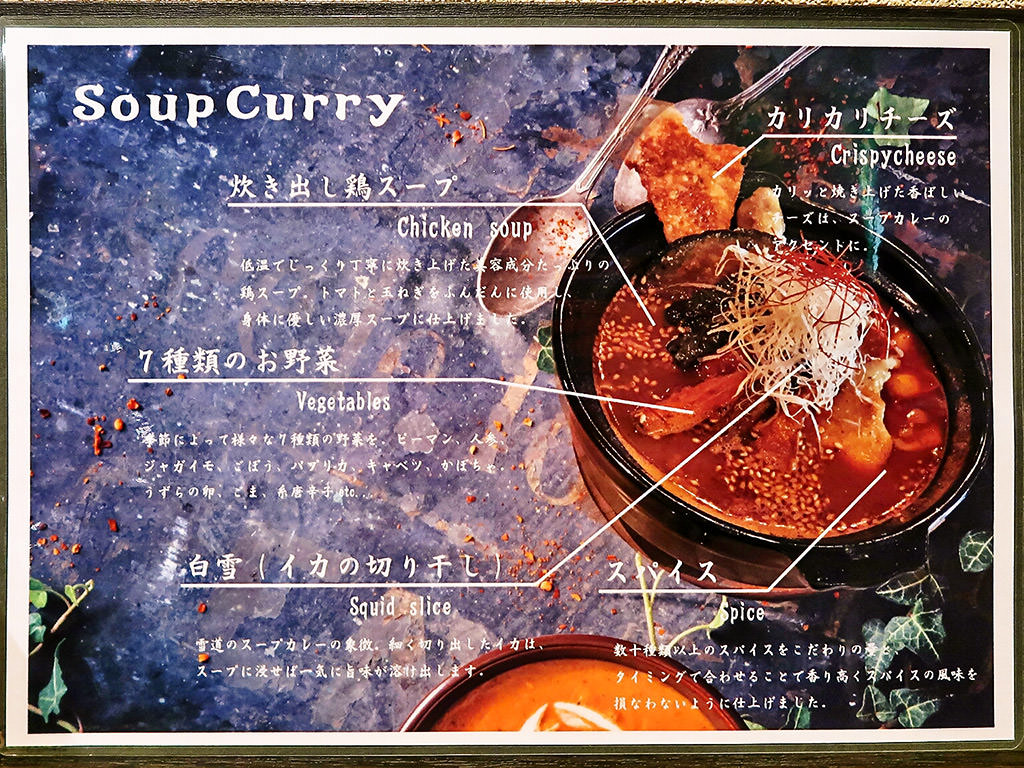 Soup Curry
カリカリチーズ
Crispycheese
カリッと焼き上げた香ばしい
チーズは、スープカレーの
アクセントに。
炊き出し鶏スープ
Chicken soup
低温でじっくり丁寧に炊き上げた美容成分たっぷりの
鶏スープ。トマトと玉ねぎをふんだんに使用し、
身体に優しい濃厚スープに仕上げました。
7種類のお野菜
Vegetables
季節によって様々な7種類の野菜を。ピーマン、人参、
ジャガイモ、ごぼう、パプリカ、キャベツ、かぼちゃ、
うずらの卵、ごま、糸唐辛子etc...
白雪（イカの切り干し）
Squid slice
雪道のスープカレーの象徴。細く切り出したイカは、
スープに浸せば一気に旨味が溶け出します。
スパイス
Spice
数十種類以上のスパイスをこだわりの
タイミングで合わせることで香り高くスパイスの風味を
損なわないように仕上げました。